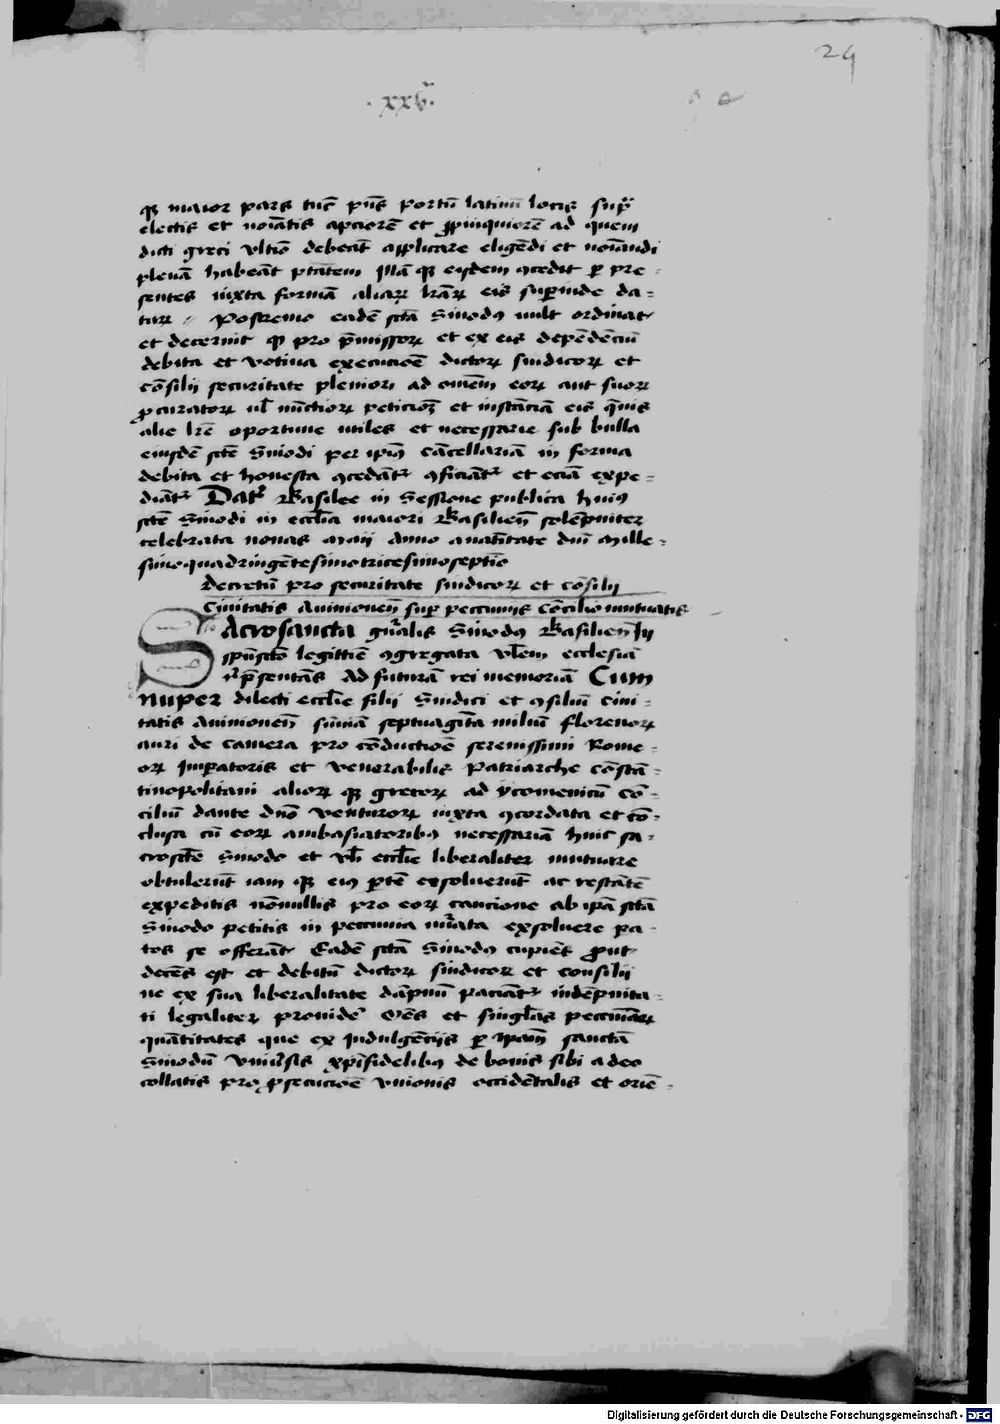 24
.xxvᵃ.
qͥ maior pars tūc p̄ns portū latinū locis sup̄
electis et noīatis apciorē et ꝓpinquiorē ad quem
dicti greci vltīo debeāt applicare eligēdi et noīandi
plenā habeāt ptātem Illā qꝫ eysdem ꝯcedit ꝑ pre-
sentes iuxta formā aliaꝝ lrāꝝ eis suꝑinde da-
taꝝ // Postremo eadē sctā Sinodꝰ vult ordinat
et decernit qꝫ pro p̄missoꝝ et ex eis depēdēciū
debita et votiua execucōe dictoꝝ sindicoꝝ et
cōsilij securitate pleniori ad om̄em eoꝝ aut suoꝝ
ꝓcuratoꝝ vl̄ nūctioꝝ peticiōꝫ et instāciā eis q̄uis
alie lrē oportune utiles et necessarie sub bulla
eiusdē scte Sinodi per ipiꝰ cācellariā in forma
debita et honesta ꝯcedāt̄ ꝯficiāt̄ et eciā expe-
diāt̄ Dat̄ Basilee in Sessione publica huiꝰ
scte Sinodi in ecclīa maiori Basilien̄ solēpniter
celebrata nonas maij Anno anatītate dnī Mille-
simoquadringētesimotricesimoseptīo
Decretū pro securitate sindicoꝝ et cōsilij
Ciuitatis Auinionen̄ sup̄ peccunijs Cōcilio mutuatis
Sacrosancta gn̄alis Sinodꝰ Basilien̄ Īn
spūsctō legittīe ꝯgregata vl̄em ecclesiā
rep̄sentās Ad futurā rei memoriā Cum
nuper dilecti ecclīe filij Sindici et ꝯsiliū ciui-
tatis Auinionen̄ sūmā septuagīta miliū florenoꝝ
auri de camera pro cōductiōe serenissimi Rome-
oꝝ Imꝑatoris et venerabilis Patriarche cōstā-
tinopolitani alioꝝ qꝫ grecoꝝ ad ycomenicū cō-
ciliū dante dnō venturoꝝ iuxta ꝯcordata et cō-
clusa cū eoꝝ ambasiatoribꝰ necessariā huic sa-
croscte Sinodo et vl̄i ecclīe liberaliter mutuare
obtulerūt iam qꝫ eiꝰ ꝑtē exsoluerūt ac restātē
expeditis nōnullis pro eoꝝ caucione ab ipā sctā
Sinodo petitis in peccunia nūata exsoluere pa-
tos se offerāt Eadē sctā Sinodꝰ cupiēs ꝓut
decēs est et debitū dictoꝝ sindicoꝝ et consilij
ne ex sua liberalitate dāpnū paciāt̄ indēpnita-
ti legaliter prouidē Oēs et singlas peccuniaꝝ
quātitates que ex Indulgēcijs ꝑ ipam sanctā
Sinodū vniūsis xp̄ifidelibꝰ de bonis sibi a deo
collatis pro ꝓsecucōe vnionis occidētalis et oriē-
Digitalisierung gefördert durch die Deutsche Forschungsgemeinschaft - DFG